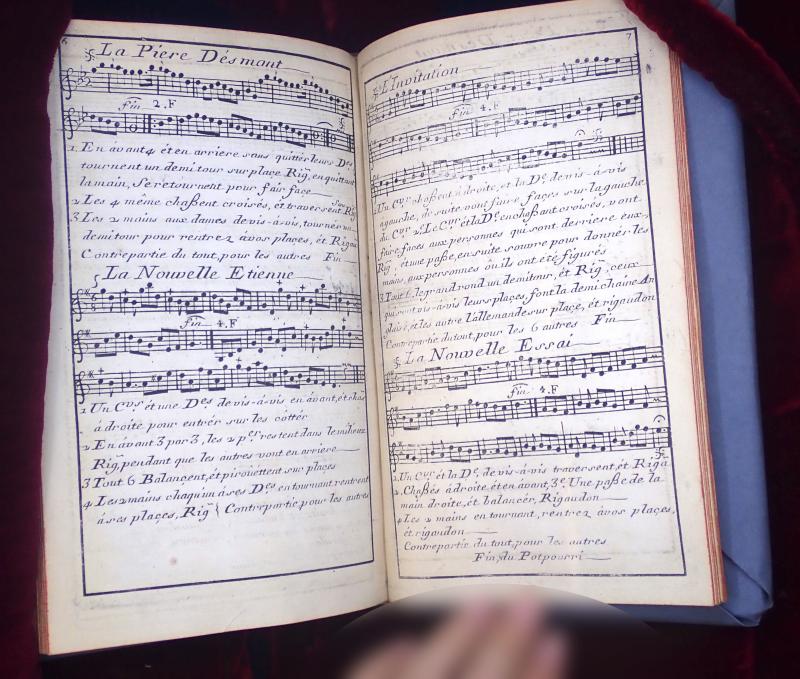 6
La Piere Désmont
fin 2.F
1. En avant 4 ét en arriere sans quitter leurs Des
tournent un demi tour sur place Rig, en quittant
la main, Se retournent pour fair face
2 Les 4 même chaßent croisés, et traversent, Rig
3 Les 2 mains aux dames de vis-á-vis, tournér un
demi tour pour rentrez ávos plaçes, ét Riga
Contrepartie du tout, pour les autres Fin
La Nouvelle Etienne
fin 4.F
1 Un Cvr ét une Des de vis-á-vis en avant, ét chaß
á droite pour entrér sur les côttér
2 En avant 3 par 3, les 2 pr restent dans le milieux
Rig, pendant que les autres vont en arriere
3 Tout 6 Balancent, ét pirouéttent sur plaçes
4 Les 2 mains chaqu'un áses Des en tournant rentrent
áses plaçes, Rig Contrepartie, pour les autres
7
L'Invitation
fin 4.F
1 Un Cvr chaßent á droite, et la De de vis-á-vis
agauche, de suite vous faire façes sur la gauche
du Cvr 2 Le Cvr ét la De en chaßant croisées, vont
faire façes aux personnes qui sont derriere eux,
Rig, ét une paße, ensuite sonvre pour donnér les
mains, aux personnes óu ils ont été figurés
3 Tout le grand rond un demi tour, ét Rig, ceux
qui sont vis-á-vis leurs plaçes, font la demi chaine An
glaise, ét les autre l'allemande sur plaçe, ét rigaudon
Contrepartie du tout, pour les 6 autres Fin
La Nouvelle Essai
fin 4.F
1. Un Cvr ét la De de vis-á-vis traversent, ét Riga
2. Chaßés á droite ét en avant, 3e Une paße de la
main droite, ét balancér, Rigaudon
4 Les 2 mains en tournant, rentrez ávos plaçes,
ét rigaudon
Contrepartie du tout, pour les autres
Fin du Potpourri